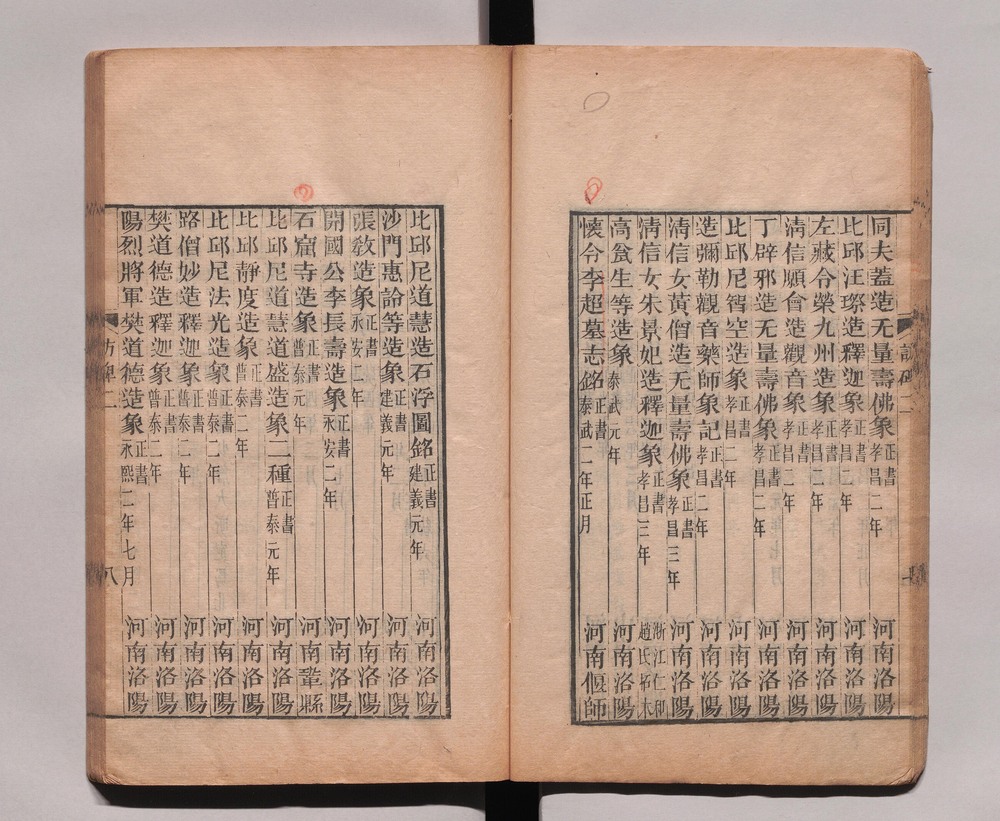 同夫蓋造无量壽佛象正書孝昌二年 河南洛陽
比邱汪㻮造釋迦象正書孝昌二年 河南洛陽
左藏令榮九州造象正書孝昌二年 河南洛陽
清信願會造觀音象正書孝昌二年 河南洛陽
丁辟邪造无量壽佛象正書孝昌二年 河南洛陽
比邱尼智空造象正書孝昌二年 河南洛陽
造彌勒觀音藥師象記正書孝昌二年 河南洛陽
清信女黃僧造无量壽佛象正書孝昌三年 河南洛陽
清信女朱景妃造釋迦象正書孝昌三年 浙江仁和趙氏本
高飡生等造象泰武元年 河南洛陽
懷令李超墓志銘正書泰武二年正月 河南偃師
比邱尼道慧造石浮圖銘正書建義元年 河南洛陽
沙門惠詥等造象正書建義元年 河南洛陽
張敎造象正書永安二年 河南洛陽
開國公李長壽造象正書永安二年 河南洛陽
石窟寺造象正書普泰元年 河南鞏縣
比邱尼道慧道盛造象二種正書普泰元年 河南洛陽
比邱靜度造象正書普泰二年 河南洛陽
比邱尼法光造象正書普泰二年 河南洛陽
路僧妙造釋迦象正書普泰二年 河南洛陽
樊道德造釋迦象正書普泰二年 河南洛陽
陽烈將軍樊道德造象正書永熙二年七月 河南洛陽
訪碑二 八